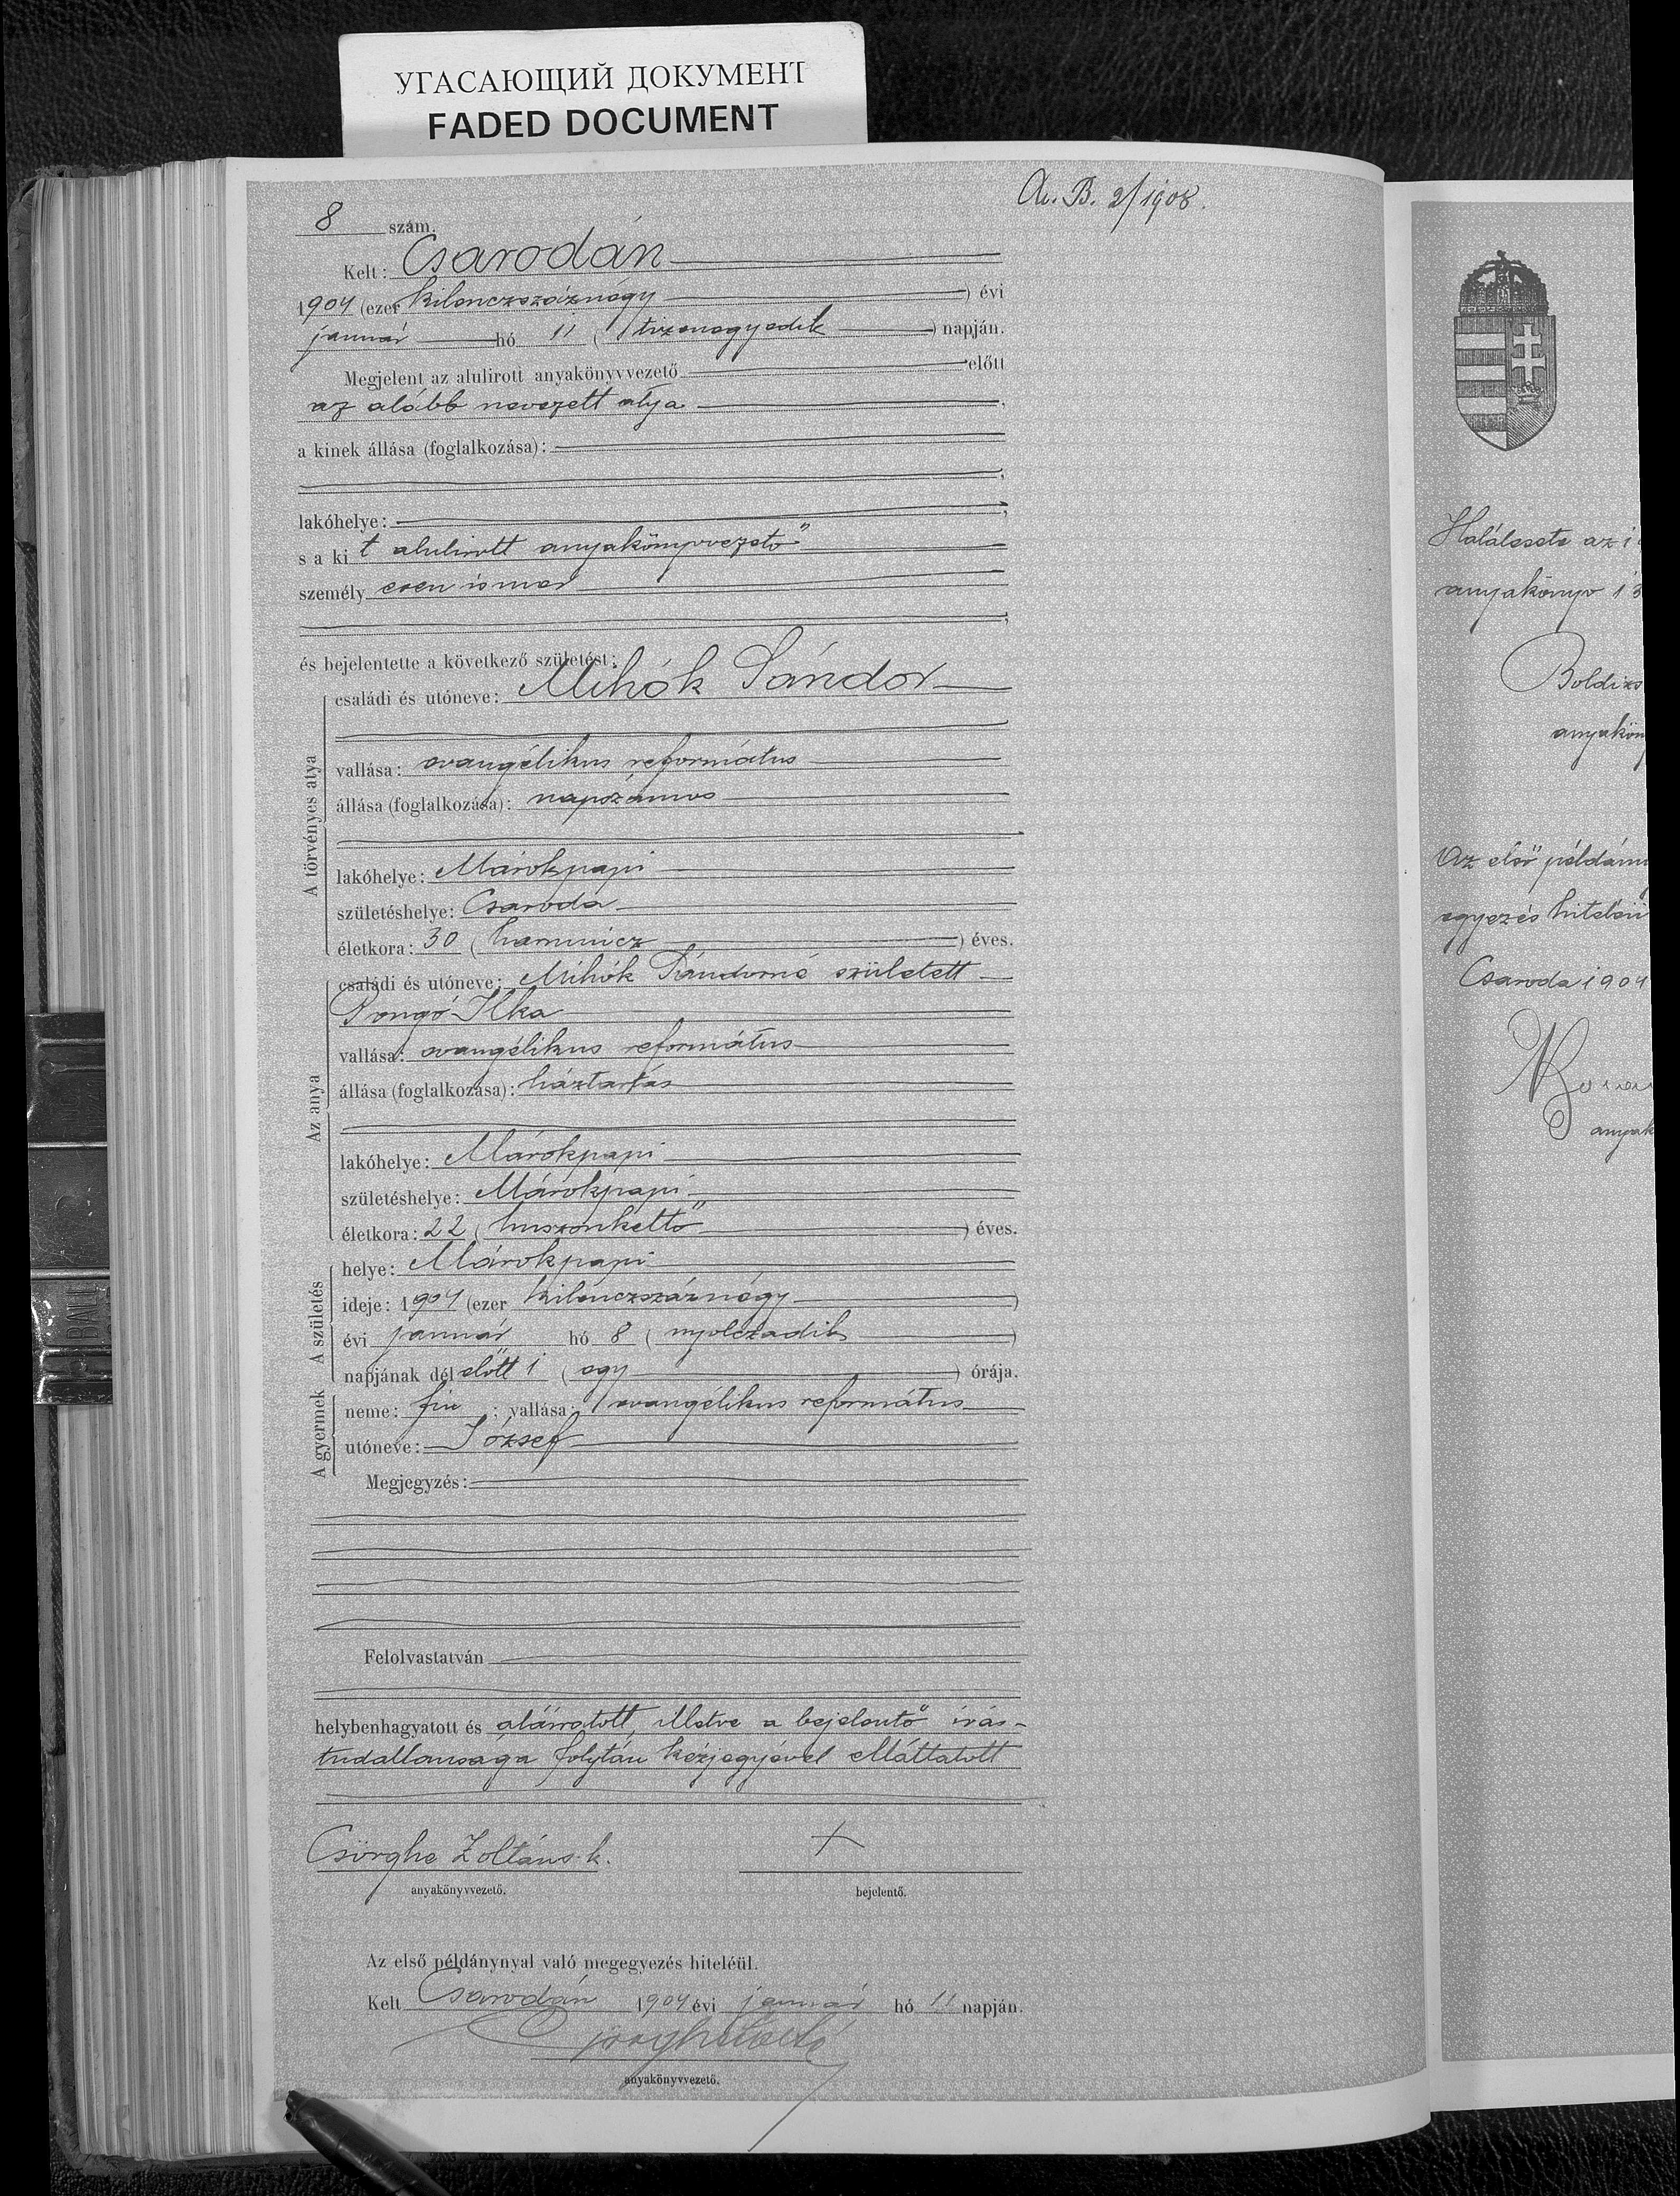 УГАСАЮЩИЙ ДОКУМЕНТ
FADED DOCUMENT
A. B. 2/1908.
8 szám.
Kelt: Csarodán
1904 (ezer kilenczszáznégy ) évi
január hó 11 ( tizenegyedik ) napján.
Megjelent az alulirott anyakönyvvezető előtt
az alább nevezett atya
a kinek állása (foglalkozása):
lakóhelye:
s a ki t alulirott anyakönyvvezető
személy esen ismer
és bejelentette a következő születést:
A törvényes atya
családi és utóneve: Mihók Sándor
vallása: evangélikus református
állása (foglalkozása): napszámos
lakóhelye: Márokpapi
születéshelye: Csaroda
életkora: 30 ( harmincz ) éves.
Az anya
családi és utóneve: Mihók Sándorné született
Pongó Ilka
vallása: evangélikus református
állása (foglalkozása): háztartás
lakóhelye: Márokpapi
születéshelye: Márokpapi
életkora: 22 ( huszonkettő ) éves.
A születés
helye: Márokpapi
ideje: 1904 (ezer kilenczszáznégy )
évi január hó 8 ( nyolczadik )
napjának dél előtt 1 ( egy ) órája.
A gyermek
neme: fiu ; vallása: evangélikus református
utóneve: József
Megjegyzés:
Felolvastatván
helybenhagyatott és aláiratott, illetve a bejelentő irás-
tudatlansága folytán kézjegyével elláttatott
Csörghe Zoltán s. k. +
anyakönyvvezető. bejelentő.
Az első példánynyal való megegyezés hiteléül.
Kelt Csarodán 1904 évi január hó 11 napján.
anyakönyvvezető.
Halálesete az i
anyakönyv 13
Boldizs
anyakön
Az első példány
egyezés hiteléü
Csaroda 1904
anyak